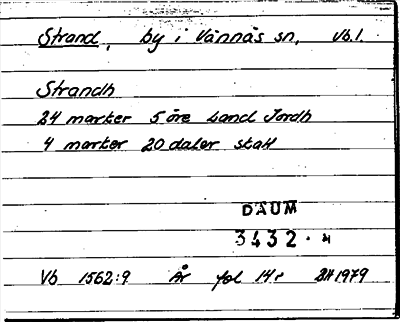 Strand, by i Vännäs sn, Vb.l.
Strandh
24 marker 5 öre Land Jordh
4 marker 20 daler skatt
DAUM
3432.
Vb 1562:9 År fol 14r 1979